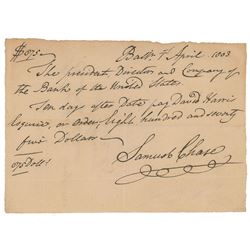 $875— Balt. 7 April 1803
The president, Directors and Company of
the Bank of the United States.
Ten days after Date pay David Harris
Esquire, or Order, Eight hundred and seventy
five Dollars
875 Doll.s
Samuel Chase